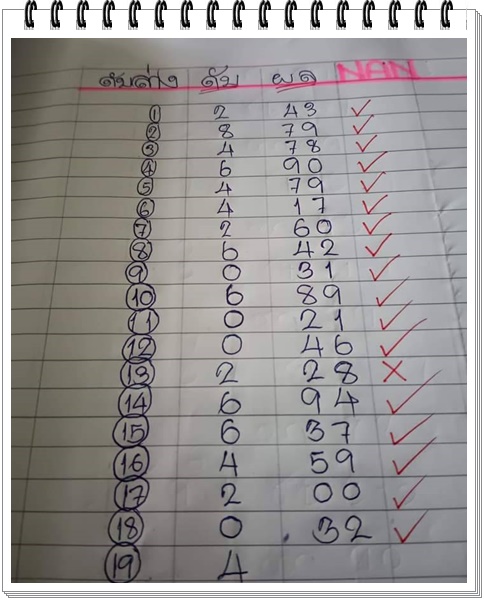 ดับล่าง ดับ ผล NAN
1 2 43 ✓
2 8 79 ✓
3 4 78 ✓
4 6 90 ✓
5 4 79 ✓
6 4 17 ✓
7 2 60 ✓
8 6 42 ✓
9 0 31 ✓
10 6 89 ✓
11 0 21 ✓
12 0 46 ✓
13 2 28 ✗
14 6 94 ✓
15 6 37 ✓
16 4 59 ✓
17 2 00 ✓
18 0 32 ✓
19 4